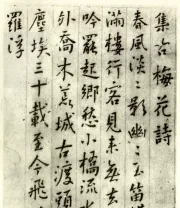 集古梅花詩
春風淡淡影幽幽玉笛
滿樓行客見來無去
吟罷起鄉愁小橋流水
外喬木蒼城古渡頭
塵埃三十載至今飛
羅浮